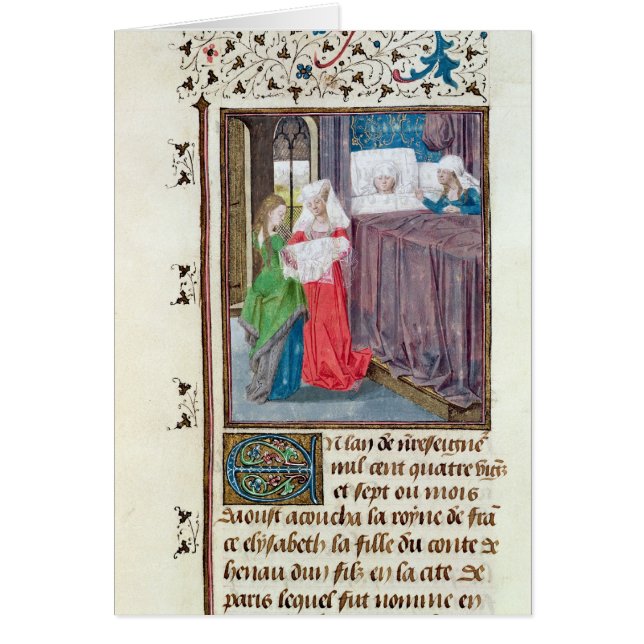 En lan de n̄reseigne᷑
mil cent quatre vigt᷑z
et sept ou mois
daoust acoucha la royne de frā
ce elysabeth la fille du conte de
henau dun filz en la cite de
paris lequel fut nomme en